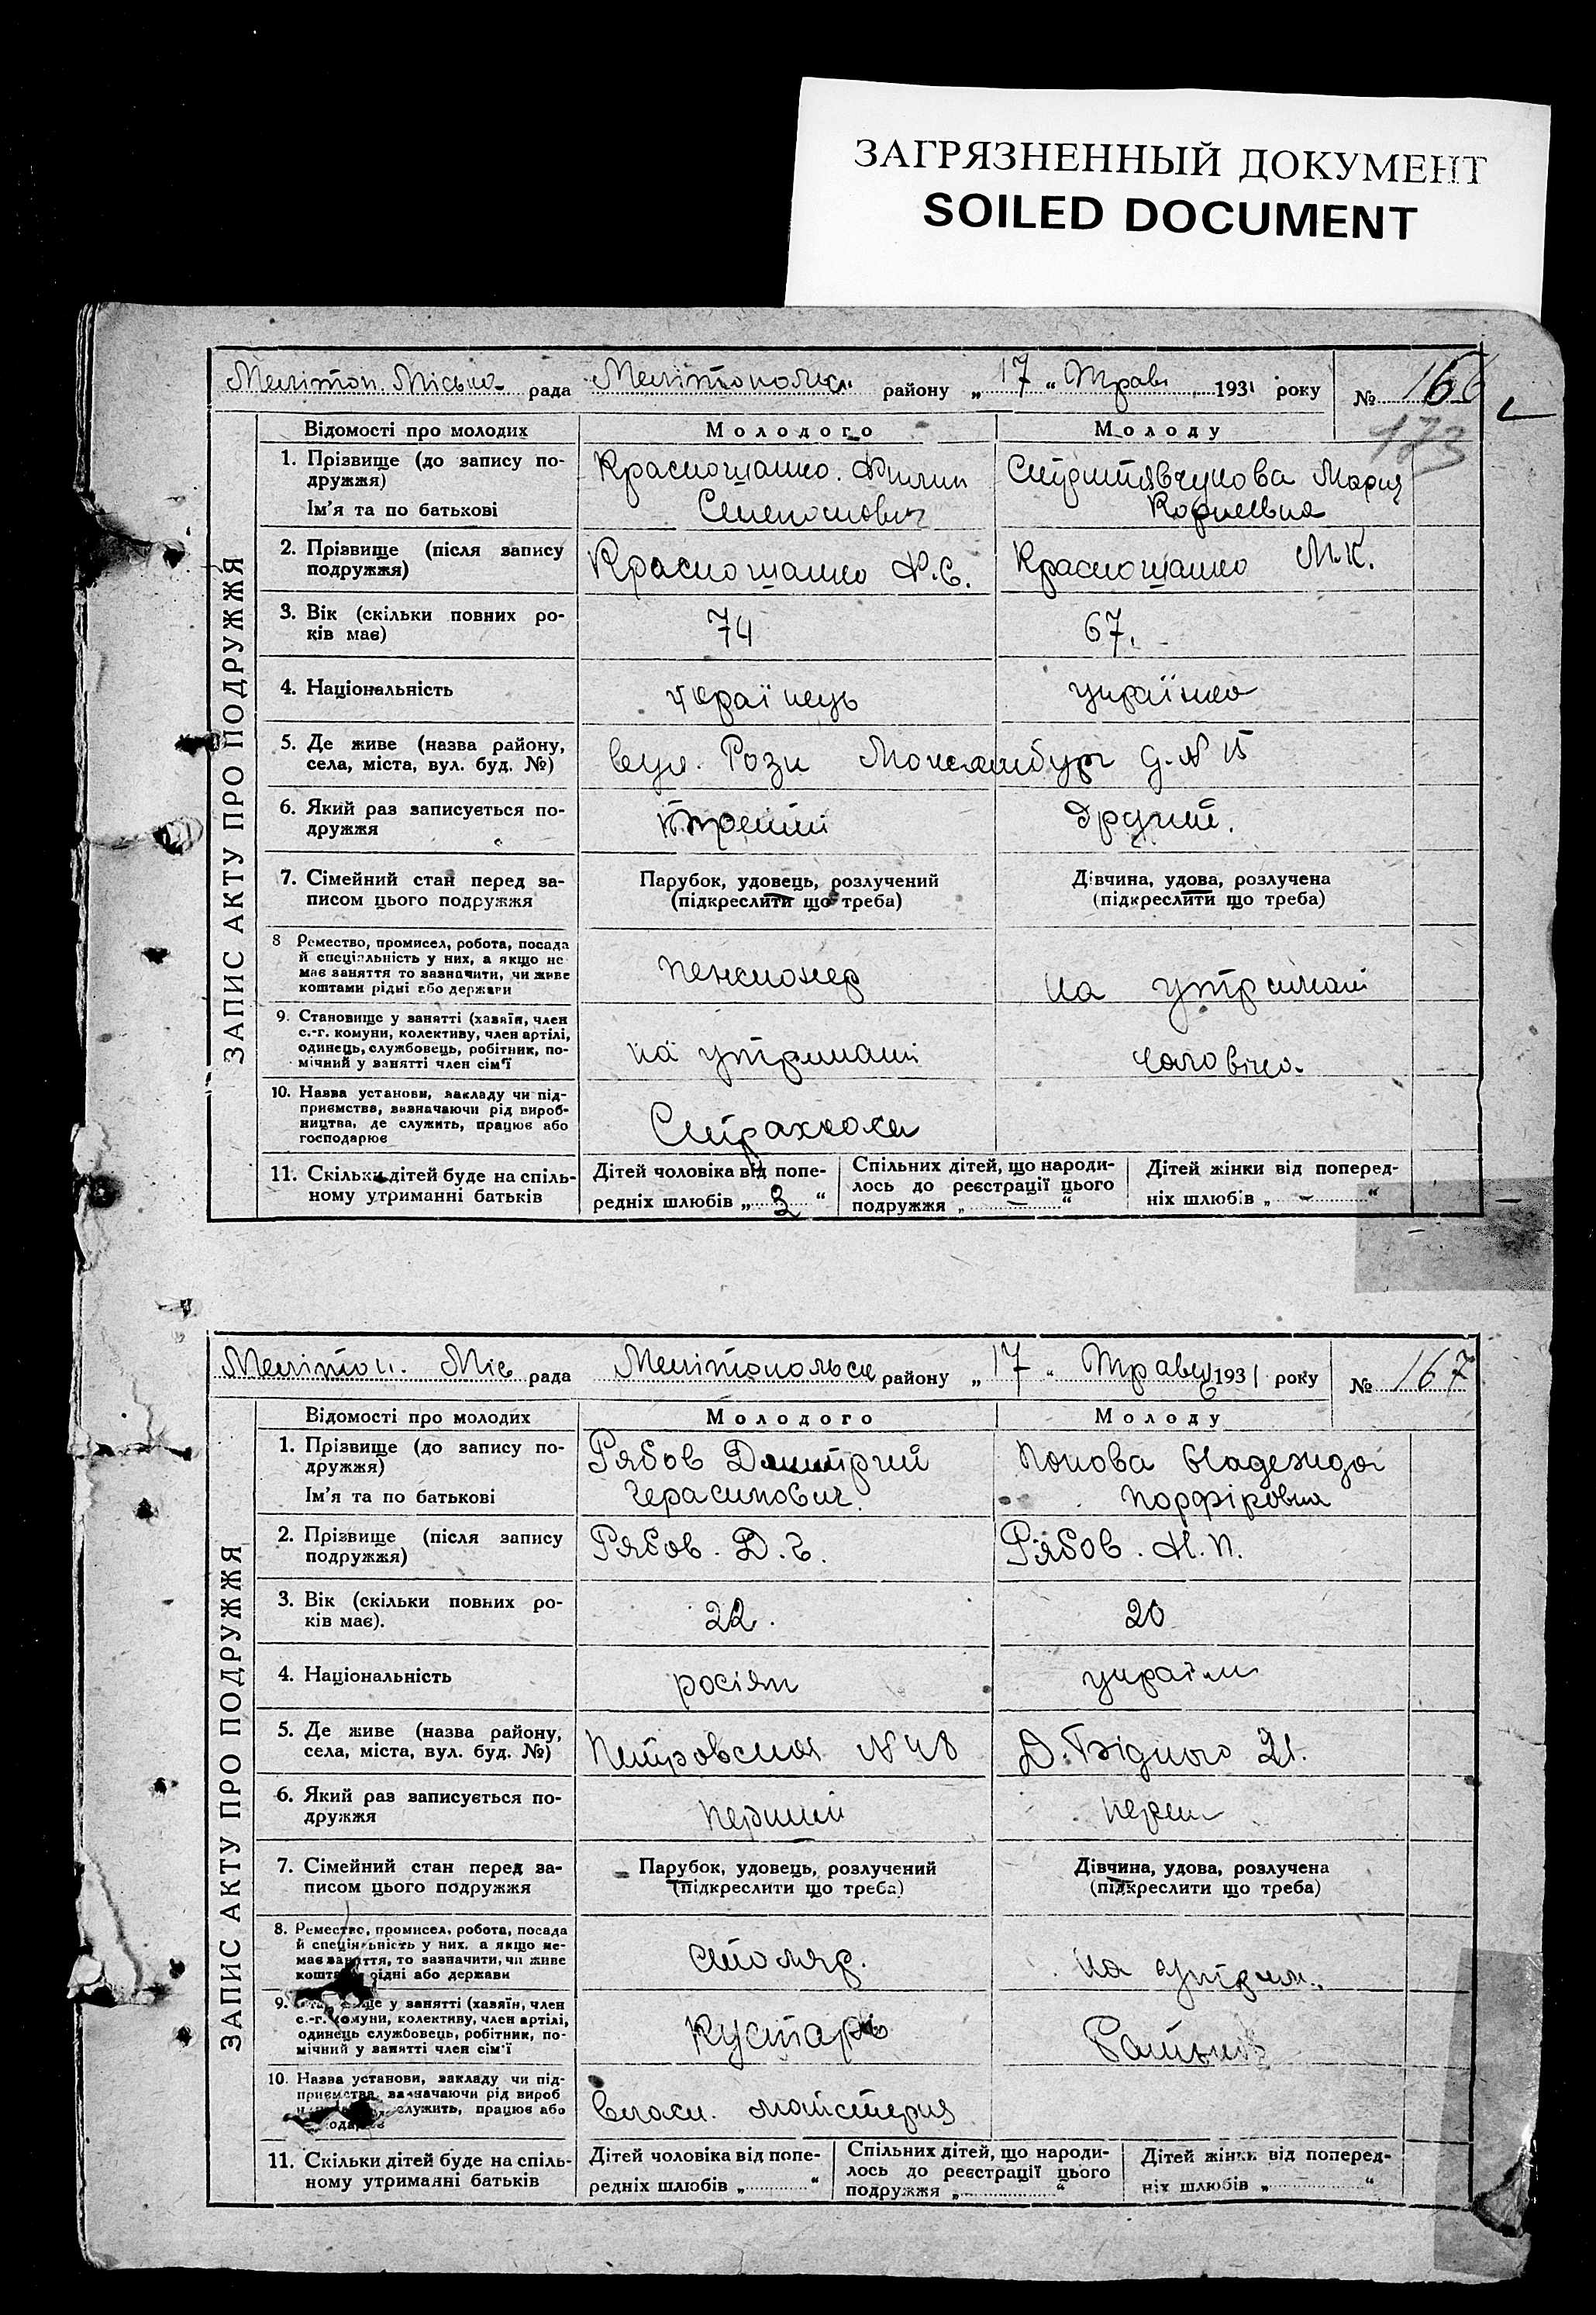 ЗАГРЯЗНЕННЫЙ ДОКУМЕНТ
SOILED DOCUMENT
Мелітоп. Міська рада Мелітопольск району „17“ Трав 1931 року № 166
173
ЗАПИС АКТУ ПРО ПОДРУЖЖЯ
Відомості про молодих Молодого Молоду
1. Прізвище (до запису по-
дружжя)
Ім'я та по батькові
Краснощапко Филип
Семенович
Мария
Корнеевна
2. Прізвище (після запису
подружжя)
Краснощапко Ф.С. Краснощапко М.К.
3. Вік (скільки повних ро-
ків має)
74 67.
4. Національність українець українка
5. Де живе (назва району,
села, міста, вул. буд. №)
вул. Рози Люксембург д. № 15
6. Який раз записується по-
дружжя
третій Другий.
7. Сімейний стан перед за-
писом цього подружжя
Парубок, удовець, розлучений
(підкреслити що треба)
Дівчина, удова, розлучена
(підкреслити що треба)
8 Ремество, промисел, робота, посада
й спеціяльність у них, а якщо не
має заняття то зазначити, чи живе
коштами рідні або держави
пенсионер на утримані
9. Становище у занятті (хазяїн, член
с.-г. комуни, колективу, член артілі,
одинець, службовець, робітник, по-
мічний у занятті член сім'ї
на утримані чоловіка.
10. Назва установи, закладу чи під-
приємства, зазначаючи рід вироб-
ництва, де служить, працює або
господарює
Страхкаси
11. Скільки дітей буде на спіль-
ному утриманні батьків
Дітей чоловіка від попе-
редніх шлюбів „3“
Спільних дітей, що народи-
лось до реєстрації цього
подружжя „—“
Дітей жінки від поперед-
ніх шлюбів „—“
Мелітоп. Міс рада Мелітопольск району „17“ Травня 1931 року № 167
ЗАПИС АКТУ ПРО ПОДРУЖЖЯ
Відомості про молодих Молодого Молоду
1. Прізвище (до запису по-
дружжя)
Ім'я та по батькові
Рябов Дмитрий
Герасимович.
Попова Надежда
Порфіровна
2. Прізвище (після запису
подружжя)
Рябов. Д.Г. Рябов. Н.П.
3. Вік (скільки повних ро-
ків має).
22. 20
4. Національність росіян україн
5. Де живе (назва району,
села, міста, вул. буд. №)
Петровская № 48 Д. Бідного 21.
6. Який раз записується по-
дружжя
перший перш
7. Сімейний стан перед за-
писом цього подружжя
Парубок, удовець, розлучений
(підкреслити що треба)
Дівчина, удова, розлучена
(підкреслити що треба)
8. Ремество, промисел, робота, посада
й спеціяльність у них, а якщо не-
має заняття, то зазначити, чи живе
кошта рідні або держави
столяр. на утрим.
9. у занятті (хазяїн, член
с.-г. комуни, колективу, член артілі,
одинець службовець, робітник, по-
мічний у занятті член сім'ї
Кустарь Батьків
10. Назва установи, закладу чи під-
приємства, зазначаючи рід вироб
служить, працює або
власн. майстерня
11. Скільки дітей буде на спіль-
ному утриманні батьків
Дітей чоловіка від попе-
редніх шлюбів „ “
Спільних дітей, що народи-
лось до реєстрації цього
подружжя „ “
Дітей жінки від поперед-
ніх шлюбів „ “